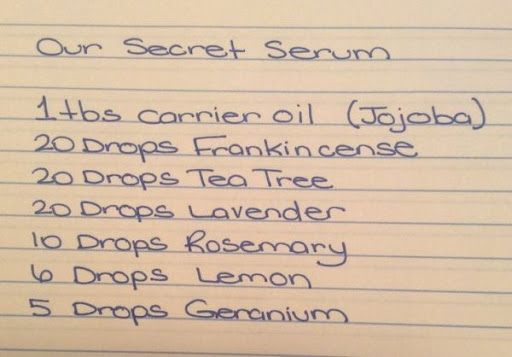 Our Secret Serum
1 tbs carrier oil (Jojoba)
20 Drops Frankincense
20 Drops Tea Tree
20 Drops Lavender
10 Drops Rosemary
6 Drops Lemon
5 Drops Geranium